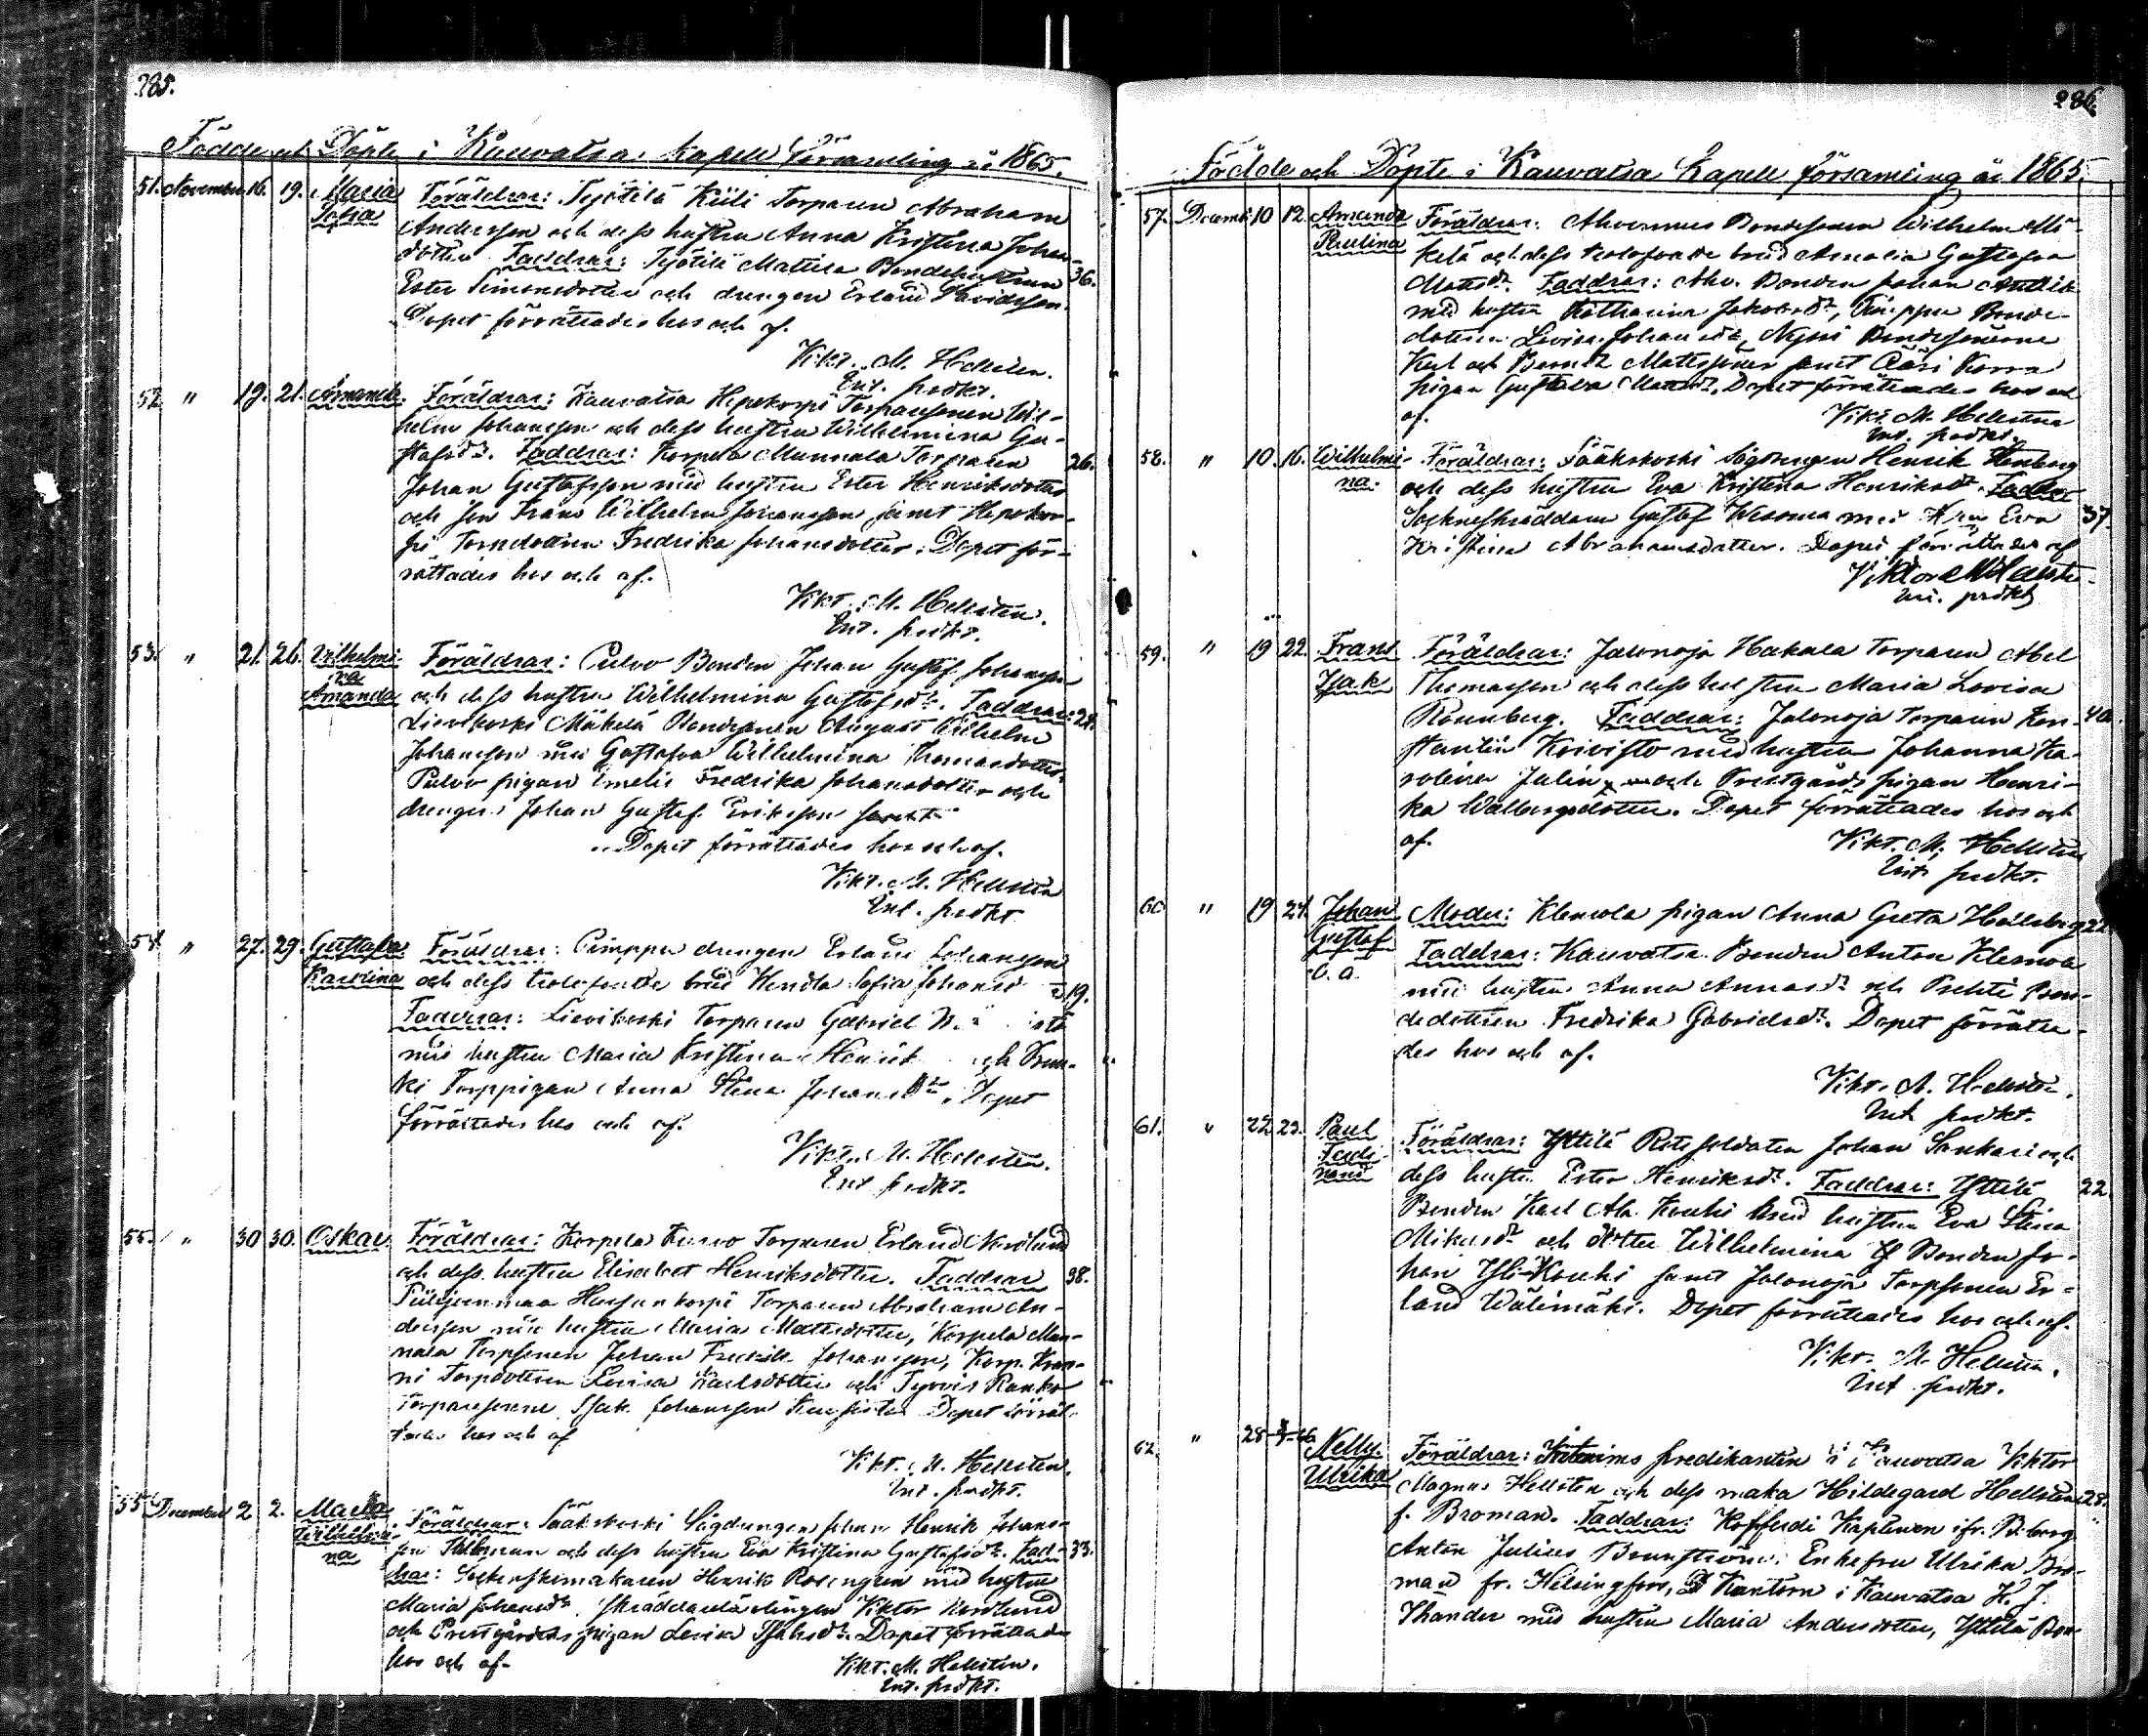 285.
Födde och Döpte i Kauvatsa Kapell församling år 1865.
51. November 16. 19. Maria Sofia
Föräldrar: Työtilä Kiili Torparen Abraham
Andersson och dess hustru Anna Kristina Johans-
dotter. Faddrar: Työtilä Mattila Bondehustrun 36.
Ester Simonsdotter och drengen Erland Davidsson.
Dopet förrättades hos och af.
Vikt. M. Hellsten.
Ext. predkt.
52. " 19. 21. Amanda.
Föräldrar: Kauvatsa Hepokorpi Torparsonen Wil-
helm Johansson och dess hustru Wilhelmina Gu-
stafsdr. Faddrar: Korpela Mannala Torparen 26.
Johan Gustafsson med hustru Ester Henriksdotter
och son Frans Wilhelm Johansson samt Hepokor-
pi Torpdottren Fredrika Johansdotter. Dopet för-
rättades hos och af.
Vikt. M. Hellsten.
Ext. predkt.
53. " 21. 26. Vilhelmi-
na
Amanda
Föräldrar: Pulvo Bonden Johan Gustaf Johansson
och dess hustru Wilhelmina Gustafsdr. Faddrar: 24.
Lievikoski Mäkelä Bondesonen August Vilhelm
Johansson med Gustafva Wilhelmina Thomasdotter
Pulvo pigan Emelie Fredrika Johansdotter och
drengen Johan Gustaf Eriksson samt
Dopet förrättades hos och af.
Vikt. M. Hellsten
Ext. predkt.
54. " 27. 29. Gustafva
Karolina
Föräldrar: Pimppu drengen Erland Johansson
och dess trolofvade brud Hendla Sofia Johansd 19.
Faddrar: Lievikoski Torparen Gabriel
med hustru Maria Kristina Henrik och
ki Torppigan Anna Stina Johansdr. Dopet
förrättades hos och af.
Vikt. M. Hellsten.
Ext. predkt.
55. " 30 30. Oskar
Föräldrar: Korpela Torparen Erland Nordlund
och dess hustru Elisabet Henriksdotter. Faddrar 38.
Piilijoenmaa Torparen Abraham An-
dersson med hustru Maria Mattsdotter, Korpela Man-
nala Torpsonen Johan Fredrik Johansson, Korp. Kran-
ni Torpdottren Lovisa Karlsdotter och Tyrvis Ranko
Torparesonen Isak Johansson Dopet förrät-
tades hos och af
Vikt. M. Hellsten.
Ext. predkt.
55 December 2 2. Maria
Wilhelmi-
na
Föräldrar: Sääkskoski Sågdrengen Johan Henrik Johans-
son och dess hustru Eva Kristina Gustafsdr. Fad- 33.
drar: Sockenskomakaren Henrik Rosengren med hustru
Maria Johansdr. Skräddarelärlingen Viktor Nordlund
och Prestgårds pigan Lovisa Isaksdr. Dopet förrättades
hos och af.
Vikt. M. Hellsten.
Ext. predkt.
286.
Födde och Döpte i Kauvatsa Kapell församling år 1865.
57. Decemb. 10 12. Amanda
Paulina
Föräldrar: Ahvennus Bondesonen Wilhelm Mi-
kelä och dess trolofvade brud Amalia Gustafva
Mattsdr. Faddrar: Ahv. Bonden Johan Anttila
med hustru Katharina Jakobsdr, Pimppu Bonde-
dottren Lovisa Johansdr, Nyssi Bondesönerne
Karl och Mattssöner samt Ääri Korra
pigan Gustafva Mattsdr. Dopet förrättades hos och
af.
Vikt. M. Hellsten
Ext. predkt.
58. " 10 16. Wilhelmi-
na.
Föräldrar: Sääkskoski Sågdrengen Henrik Stenberg
och dess hustru Eva Kristina Henriksdr. Faddrar
Sockneskräddaren Gustaf Wesoma med Hru Eva 37
Kristina Abrahamsdotter. Dopet förrättades af
Viktor M Hellsten
Ext. predkt
59. " 19 22. Frans
Isak
Föräldrar: Jalonoja Hakala Torparen Abel
Thomasson och dess hustru Maria Lovisa
Rosenberg. Faddrar: Jalonoja Torparen Kon- 40.
stantin Koivisto med hustru Johanna Ka-
rolina Julin och Prestgårds pigan Henri-
ka Wallbergsdotter. Dopet förrättades hos och
af.
Vikt. M. Hellsten
Ext. predkt.
60 " 19 24. Johan
Gustaf
o. ä.
Moder: Klemola pigan Anna Greta Hellberg 22
Faddrar: Kauvatsa Bonden Anton Klemola
med hustru Anna Annasdr och Pehti Bon-
dedottren Fredrika Gabrielsdr. Dopet förrätta-
des hos och af.
Vikt. M. Hellsten.
Ext. predkt.
61. " 22 23. Paul
Ferdi-
nand
Föräldrar: Yttilä Rotesoldaten Johan Sankari och
dess hustru Ester Henriksdr. Faddrar: Yttilä 22
Bonden Karl Ala Kouhi med hustru Eva Stina
Mikaelsdr och dotter Wilhelmina Bonden Jo-
han Yli-Kouhi samt Jalonoja Torpsonen Er-
land Wälimäki. Dopet förrättades hos och af.
Vikt. M. Hellsten.
Ext. predkt.
62. " 28 Nelly
Ulrika
Föräldrar: predikanten i Kauvatsa Viktor
Magnus Hellsten och dess maka Hildegard Hellsten 28.
f. Broman. Faddrar: Kofferdi Kaptenen ifr. Bborg
Anton Julius Brunström. Enkefru Ulrika Bro-
man fr. Helsingfors, Kantorn i Kauvatsa K. J.
Thander med hustru Maria Andersdotter, Yttilä Bon-